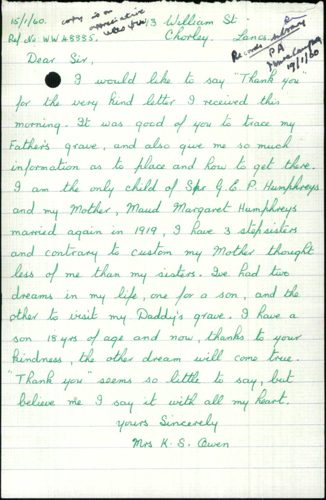 15/1/60.
13 William St.
Ref. No. WW 48335.
Chorley. Lancs.
copy is on
appreciative
Records
PA
19/1/60
Dear Sir,
I would like to say "Thank you"
for the very kind letter I received this
morning. It was good of you to trace my
Father's grave, and also give me so much
information as to place and how to get there.
I am the only child of Spr G. E. P. Humphreys
and my Mother, Maud Margaret Humphreys
married again in 1919, I have 3 stepsisters
and contrary to custom my Mother thought
less of me than my sisters. I've had two
dreams in my life, one for a son, and the
other to visit my Daddy's grave. I have a
son 18 yrs of age and now, thanks to your
kindness, the other dream will come true.
"Thank you" seems so little to say, but
believe me I say it with all my heart.
Yours Sincerely
Mrs K. S. Owen